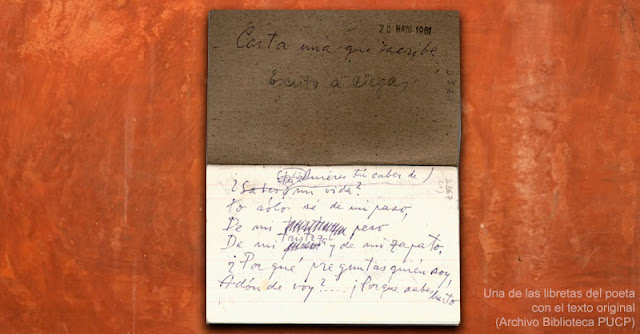 MAYO 1961
Carta una que escribe
Escrito a ciegas
(Quieres tú saber de)
¿Sabes mi vida?
Yo sólo sé de mi paso,
De mi peso
De mi tristeza y de mi zapato,
¿Por qué preguntas quién soy,
Adónde voy?.... ¡Porque sabes harto
Una de las libretas del poeta
con el texto original
(Archivo Biblioteca PUCP)